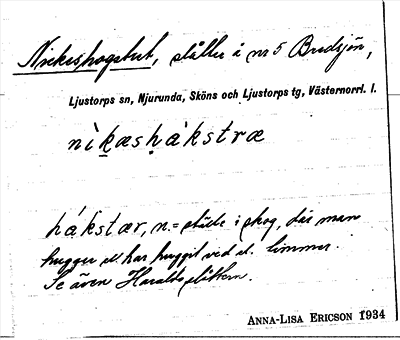 Nickeshogstret, ställe å nr 5 Bredsjön,
Ljustorps sn, Njurunda, Sköns och Ljustorps tg, Västernorrl. l.
nìḵæsḥàkstræ
hákstær, n. = ställe i skog, där man
hugger el. har huggit ved el. timmer.
Se även Haraldsslåttern.
ANNA-LISA ERICSON 1934